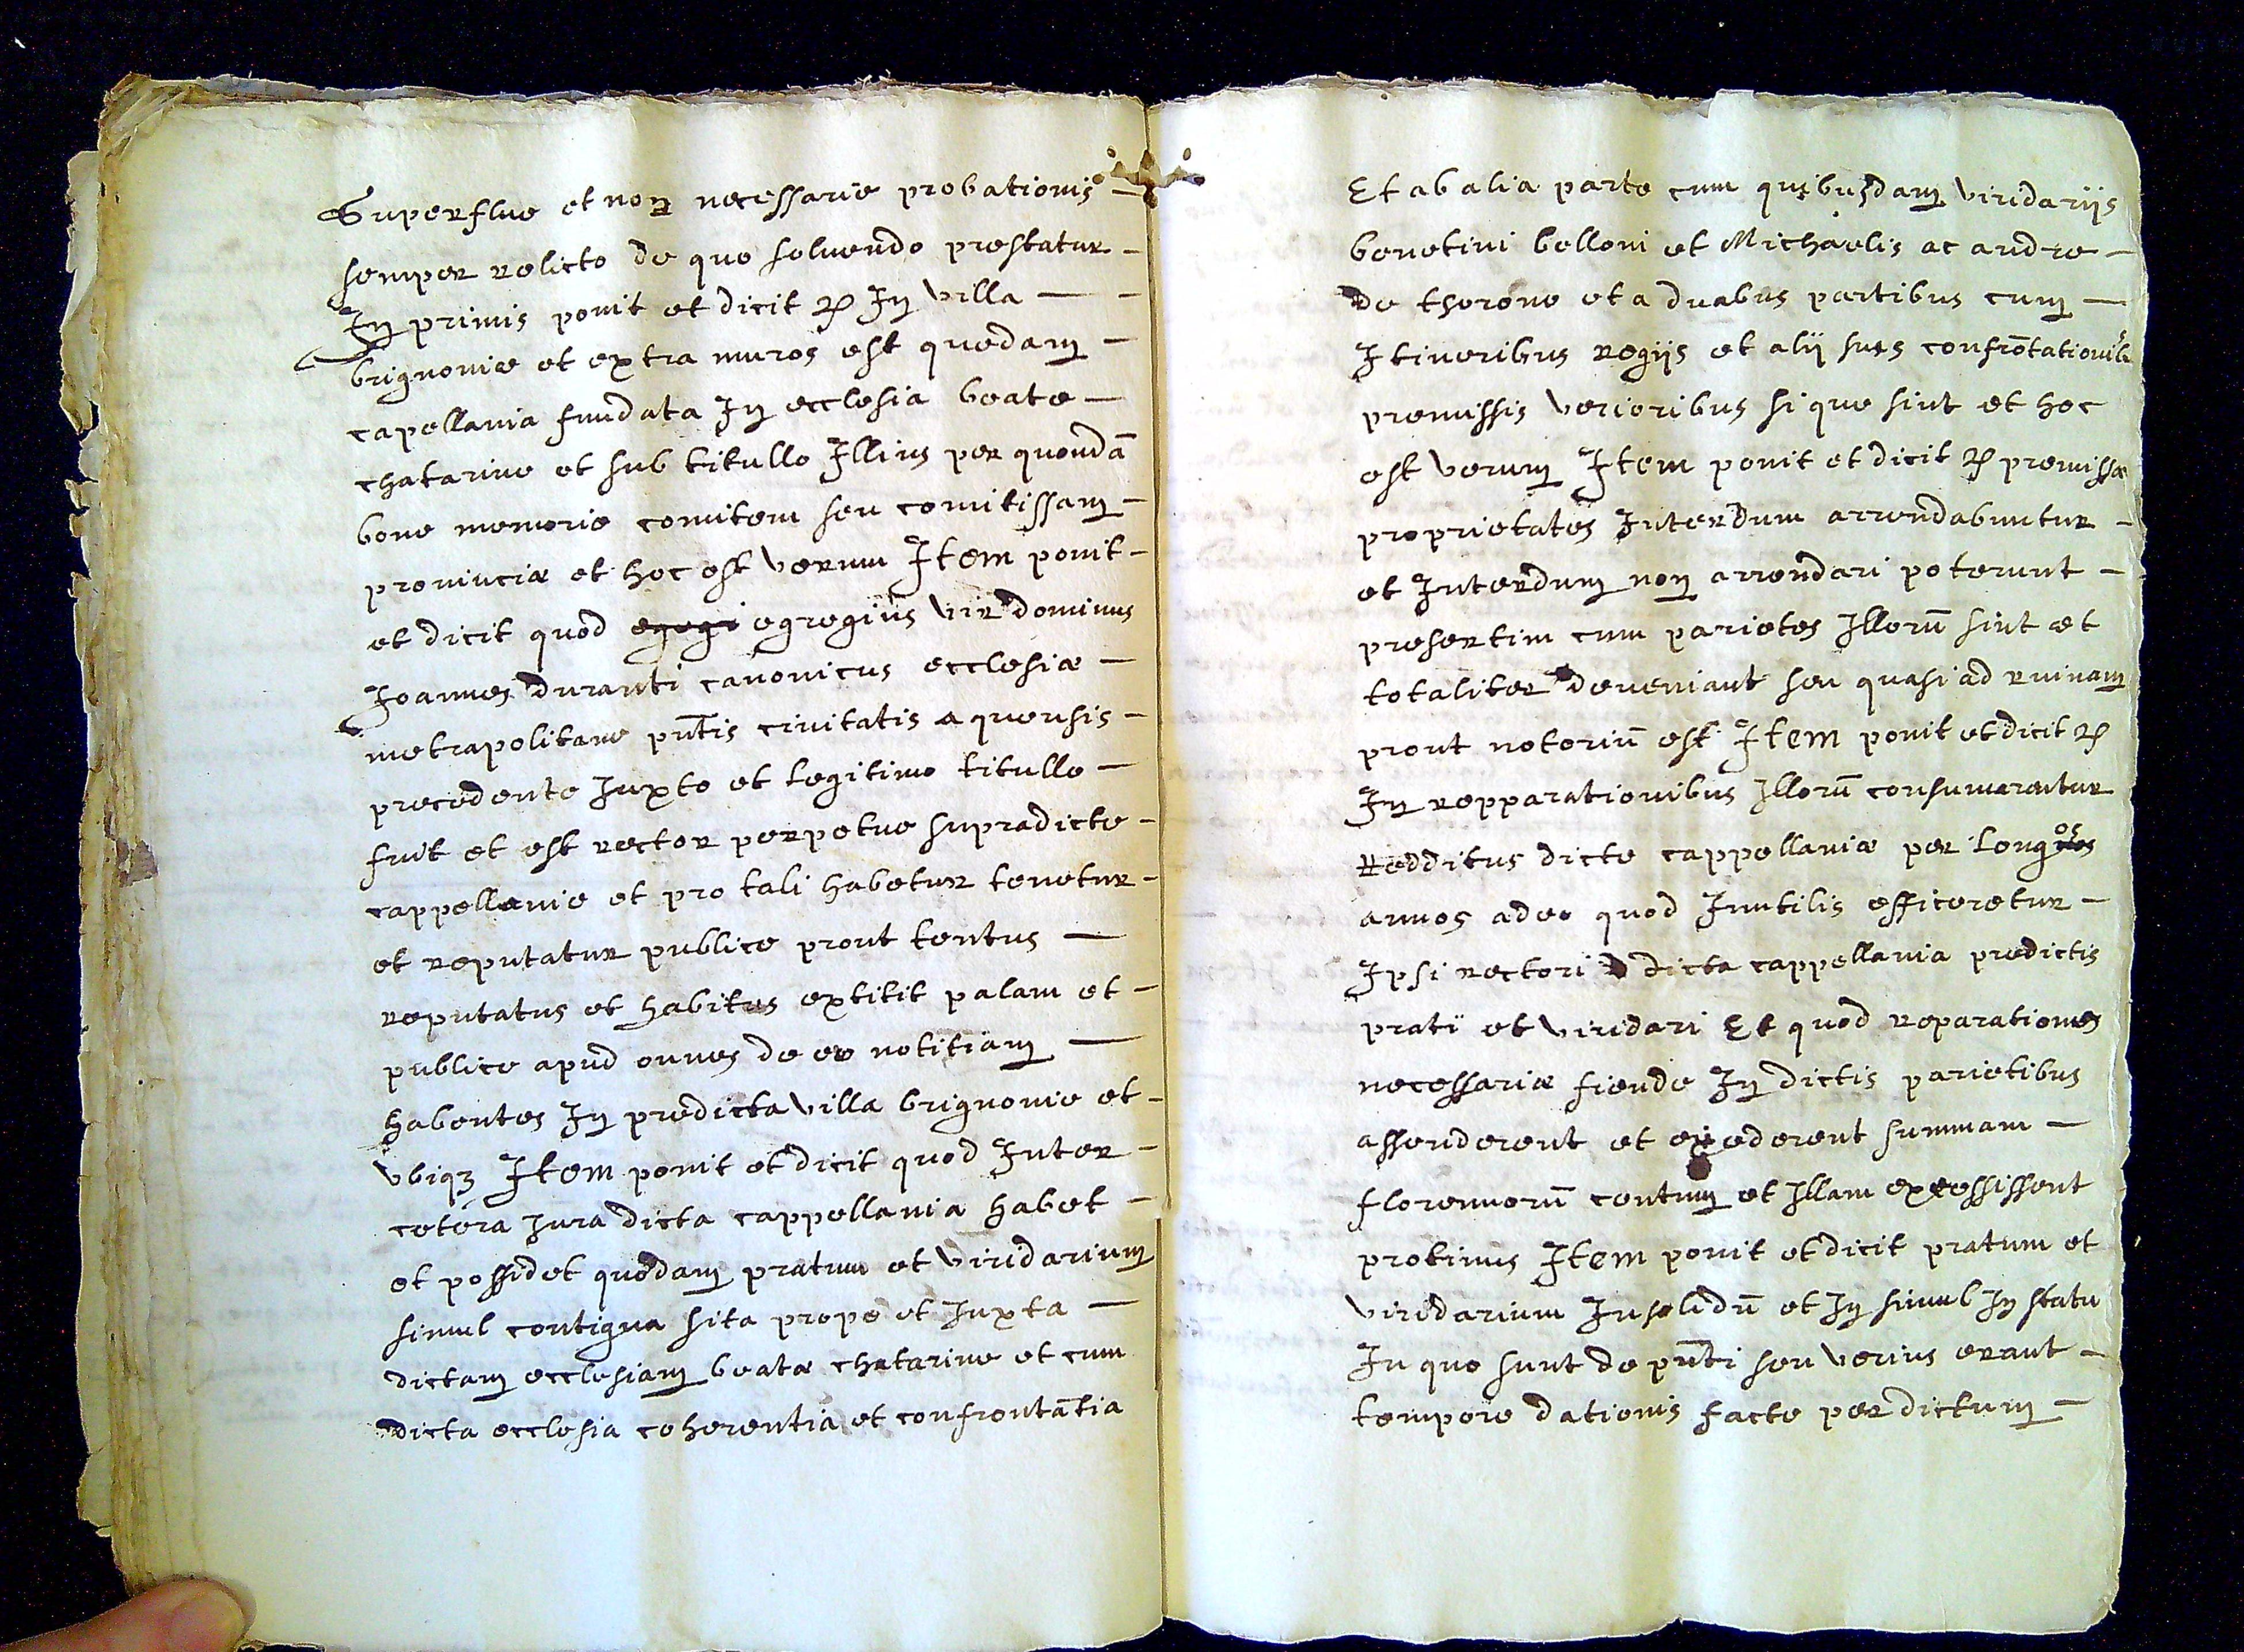 Superflue et non necessarie probationis –
semper relicto de quo soluendo prestatur –
In primis ponit et dicit ꝙ In villa –
brignonie et extra muros est quedam –
capellania fundata In ecclesia beate –
chatarine et sub titullo Illius per quondā
bone memorie comitem seu comitissam –
prouinciæ et hoc est verum Item ponit –
et dicit quod egegi egregius vir dominus
Joannes duranti canonicus ecclesiæ –
metrapolitane pn̄tis ciuitatis aquensis –
precedente Juxto et legitimo titullo –
fuit et est rector perpetue supradicte –
cappellanie et pro tali habetur tenetur –
et reputatur publice prout tentus –
reputatus et habitus extitit palam et –
publice apud omnes de eo notitiam –
habentes In predicta villa brignonie et –
vbiqꝫ Item ponit et dicit quod Inter –
cetera Jura dicta cappellania habet –
et possidet quedam pratum et viridarium
simul contigua sita prope et Juxta –
dictam ecclesiam beatæ chatarine et cum
dicta ecclesia coherentia et confrontātia
Et ab alia parte cum quibusdam viridariis
benetini belloni et Michaelis ac andre –
de thorone et a duabus partibus cum –
Itineribus regiis et alij sues confrōtationib
premissis verioribus si que sint et hoc
est verum Item ponit et dicit ꝙ premissæ
proprietates Interdum arrendabuntur –
et Interdum non arrendari poterunt –
presertim cum parietes Illorū sint et
totaliter deueniant seu quasi ad ruinam
prout notoriū est Item ponit et dicit ꝙ
In repparationibus Illorū consumerentur
Redditus dicte cappellaniæ per longos
annos adeo quod Inutilis efficeretur –
Ipsi rectori dicta cappellania predictis
prati et viridari Et quod reparationes
necessariæ fiende In dictis parietibus
assenderent et excederent summam –
florennorū centum et Illam excessissent
protinus Item ponit et dicit pratum et
viridarium Insolidū et In simul In statu
In quo sunt de pn̄ti seu verius erant –
tempore dationis facte per dictum –